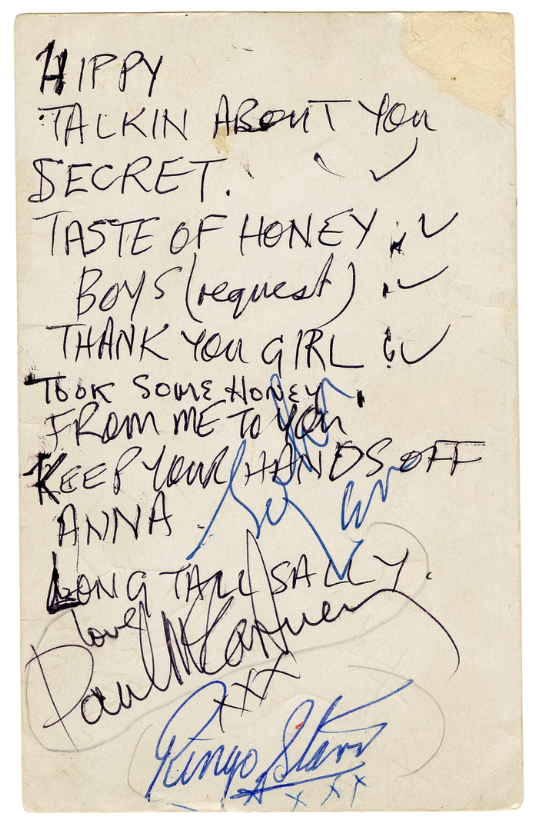 HIPPY
TALKIN ABOUT You
SECRET. ✓
TASTE OF HONEY ✓
BOYS (request) ✓
THANK YOU GIRL ✓
TOOK SOME HONEY
FROM ME TO YOU
KEEP YOUR HANDS OFF
ANNA
LONG TALL SALLY.
love
Paul McCartney
xxx
Ringo Starr
xxx